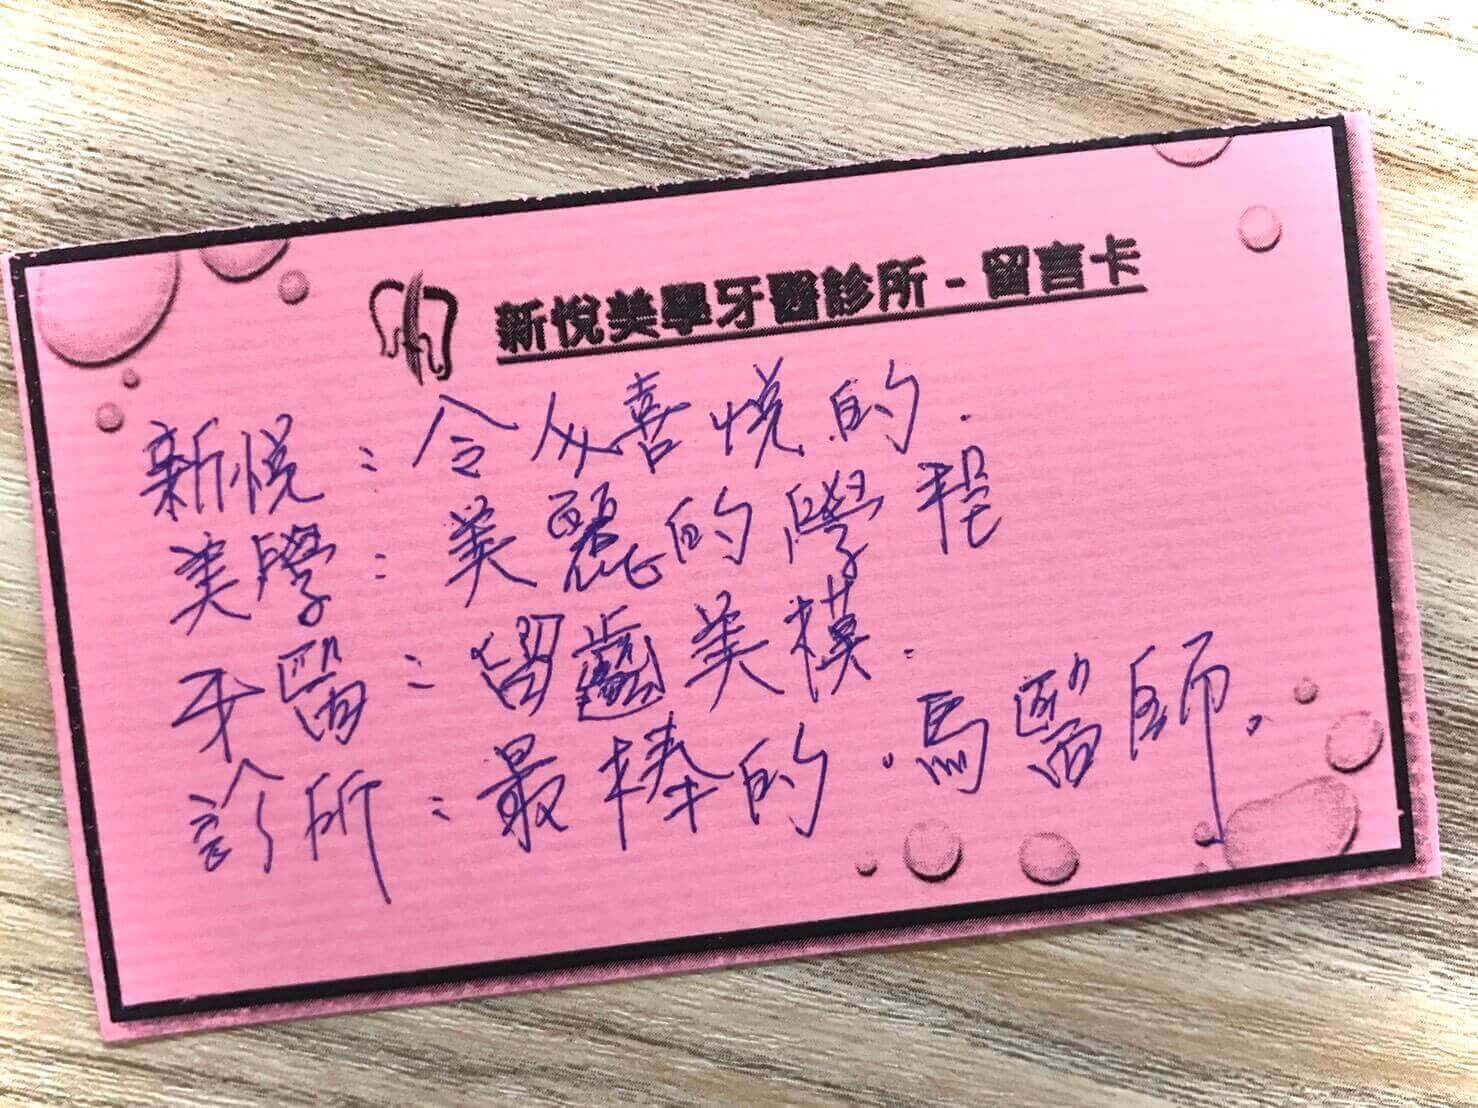 新悅美學牙醫診所-留言卡
新悅：令人喜悅的.
美學：美麗的學程
牙醫：留齒美模.
診所：最棒的.馬醫師.